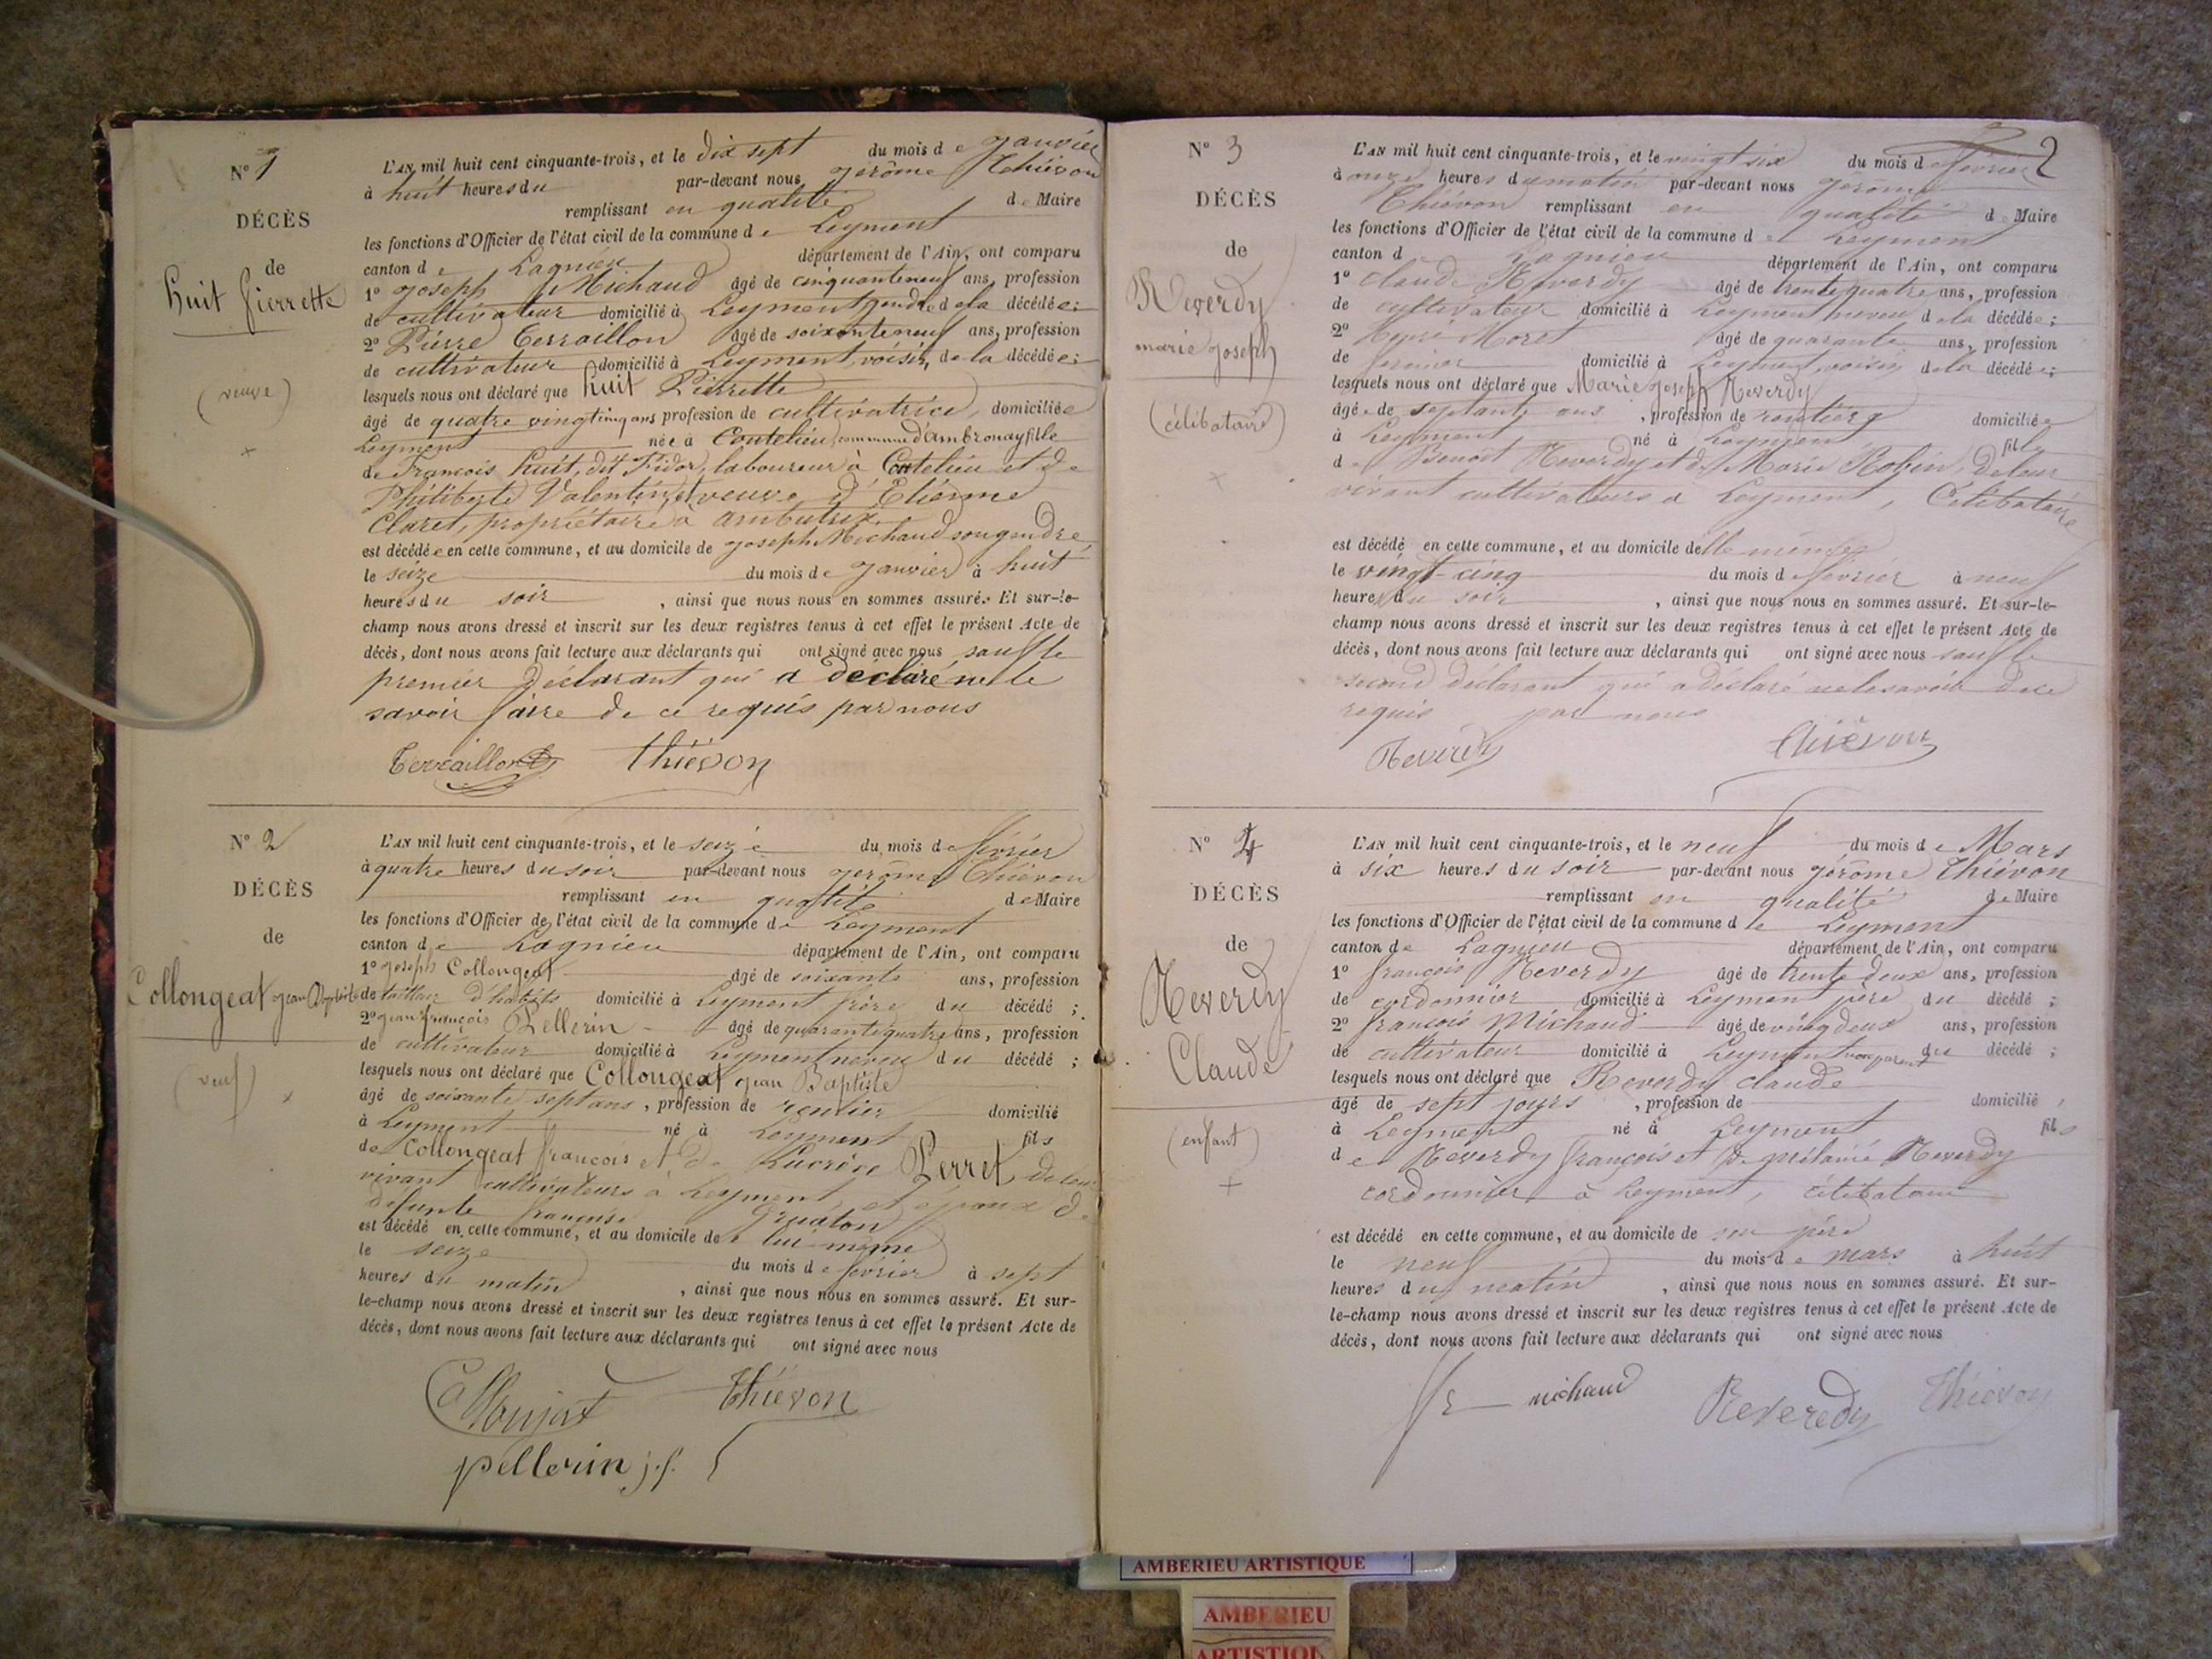 N° 1
DÉCÈS
de
Huit Pierrette
(veuve)
L'AN mil huit cent cinquante-trois, et le dix sept du mois de janvier
à huit heures du par-devant nous jérôme Thiévon
remplissant en qualité de Maire
les fonctions d'Officier de l'état civil de la commune de Leyment
canton de Lagnieu département de l'Ain, ont comparu
1° joseph Michaud âgé de cinquanteneuf ans, profession
de cultivateur domicilié à Leyment gendre de la décédée;
2° Pierre Terraillon âgé de soixanteneuf ans, profession
de cultivateur domicilié à Leyment, voisin de la décédée;
lesquels nous ont déclaré que huit Pierrette
âgé de quatre vingt cinq ans profession de cultivatrice, domiciliée
Leyment née à Coutelieu, commune d'ambronay fille
de François huit, dit Fidor, laboureur à Coutelieu et de
Philiberte Valentin, et veuve d'Etienne
Claret, propriétaire à ambutrix
est décédée en cette commune, et au domicile de joseph Michaud son gendre,
le seize du mois de janvier à huit
heures du soir , ainsi que nous nous en sommes assuré. Et sur-le-
champ nous avons dressé et inscrit sur les deux registres tenus à cet effet le présent Acte de
décès, dont nous avons fait lecture aux déclarants qui ont signé avec nous sauf le
premier déclarant qui a déclaré ne le
savoir faire de ce requis par nous
Terraillon Thiévon
N° 2
DÉCÈS
de
Collongeat jean Baptiste
(veuf)
L'AN mil huit cent cinquante-trois, et le seize du mois de février
à quatre heures du soir par-devant nous jérôme Thiévon
remplissant en qualité de Maire
les fonctions d'Officier de l'état civil de la commune de Leyment
canton de Lagnieu département de l'Ain, ont comparu
1° joseph Collongeat âgé de soixante ans, profession
de tailleur d'habits domicilié à Leyment frère du décédé;
2° jean françois Pellerin âgé de quarante quatre ans, profession
de cultivateur domicilié à Leyment neveu du décédé;
lesquels nous ont déclaré que Collongeat jean Baptiste
âgé de soixante sept ans, profession de rentier domicilié
à Leyment né à Leyment fils
de Collongeat françois et de Lucrèce Perret, de leur
vivant cultivateurs à Leyment, et époux de
défunte françoise
est décédé en cette commune, et au domicile de lui même
le seize du mois de février à sept
heures du matin , ainsi que nous nous en sommes assuré. Et sur-
le-champ nous avons dressé et inscrit sur les deux registres tenus à cet effet le présent Acte de
décès, dont nous avons fait lecture aux déclarants qui ont signé avec nous
Thiévon
pellerin j.f.
2
N° 3
DÉCÈS
de
Reverdy
marie joseph
(célibataire)
L'AN mil huit cent cinquante-trois, et le vingt six du mois de février
à onze heures du matin par-devant nous jérôme
Thiévon remplissant en qualité de Maire
les fonctions d'Officier de l'état civil de la commune de Leyment
canton d Lagnieu département de l'Ain, ont comparu
1° claude Reverdy âgé de trente quatre ans, profession
de cultivateur domicilié à Leyment neveu de la décédée;
2° Moret âgé de quarante ans, profession
de fermier domicilié à Leyment, voisin de la décédée;
lesquels nous ont déclaré que Marie joseph Reverdy
âgée de septante ans , profession de rentière domiciliée
à Leyment né à Leyment fille
de Benoit Reverdy et de Marie Robin, de leur
vivant cultivateurs à Leyment, Célibataire
est décédé en cette commune, et au domicile d'elle même
le vingt-cinq du mois de février à neuf
heures du soir , ainsi que nous nous en sommes assuré. Et sur-le-
champ nous avons dressé et inscrit sur les deux registres tenus à cet effet le présent Acte de
décès, dont nous avons fait lecture aux déclarants qui ont signé avec nous sauf le
second déclarant qui a déclaré ne le savoir de ce
requis par nous
Reverdy Thiévon
N° 4
DÉCÈS
de
Reverdy
Claude
(enfant)
L'AN mil huit cent cinquante-trois, et le neuf du mois de Mars
à six heures du soir par-devant nous jérôme Thiévon
remplissant en qualité de Maire
les fonctions d'Officier de l'état civil de la commune de Leyment
canton de Lagnieu département de l'Ain, ont comparu
1° françois Reverdy âgé de trente deux ans, profession
de cordonnier domicilié à Leyment père du décédé;
2° françois Michaud âgé de vingt deux ans, profession
de cultivateur domicilié à Leyment non parent du décédé;
lesquels nous ont déclaré que Reverdy claude
âgé de sept jours , profession de domicilié
à Leyment né à Leyment fils
de Reverdy françois et de mélanie Reverdy
cordonnier à Leyment, célibataire
est décédé en cette commune, et au domicile de son père
le neuf du mois de mars à huit
heures du matin , ainsi que nous nous en sommes assuré. Et sur-
le-champ nous avons dressé et inscrit sur les deux registres tenus à cet effet le présent Acte de
décès, dont nous avons fait lecture aux déclarants qui ont signé avec nous
michaud Reveredy Thiévon
AMBERIEU ARTISTIQUE
AMBERIEU
ARTISTIQUE